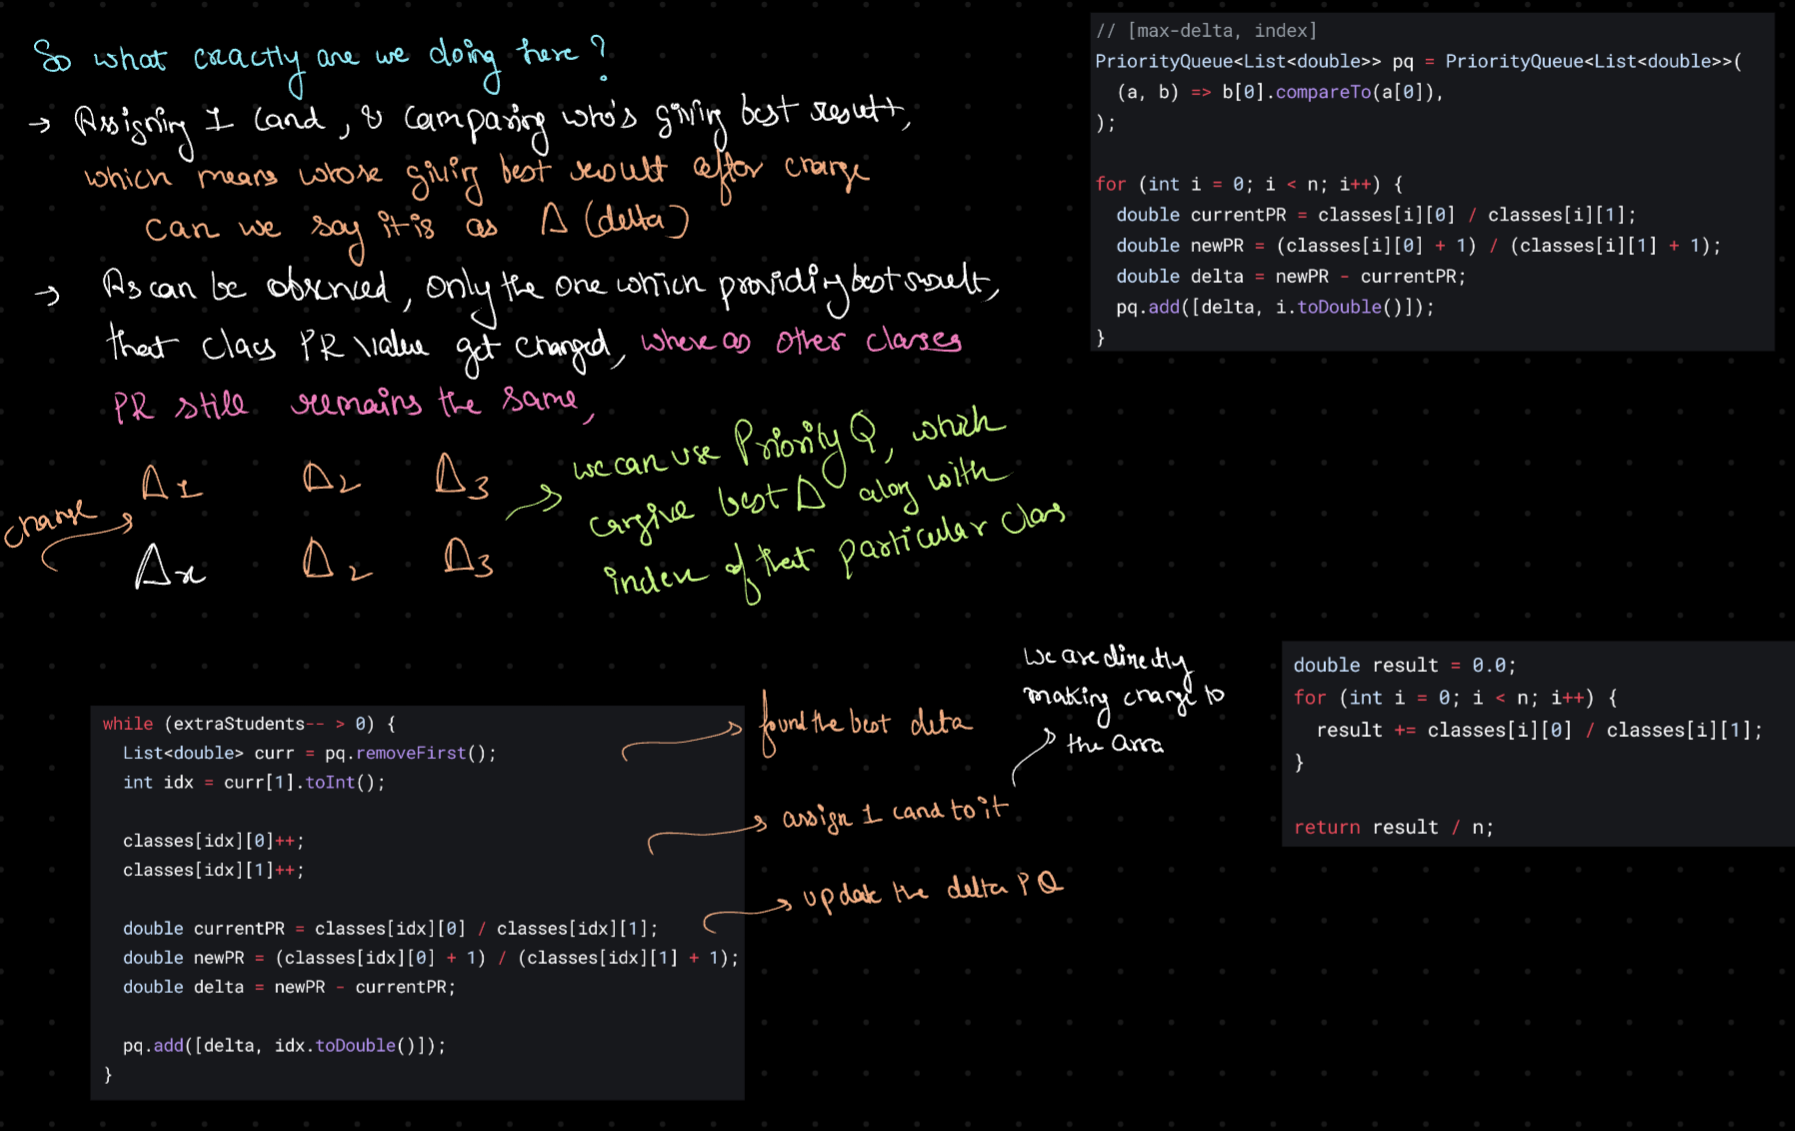 So what exactly are we doing here?
→ Assigning 1 cand, & comparing who's giving best result,
which means whose giving best result after change
can we say it is as Δ (delta)
→ As can be observed, only the one which providing best result,
that class PR value get changed, where as other classes
PR still remains the same,
Δ1 Δ2 Δ3
change
Δx Δ2 Δ3
we can use Priority Q, which
can give best Δ along with
index of that particular class
// [max-delta, index]
PriorityQueue<List<double>> pq = PriorityQueue<List<double>>(
(a, b) => b[0].compareTo(a[0]),
);
for (int i = 0; i < n; i++) {
double currentPR = classes[i][0] / classes[i][1];
double newPR = (classes[i][0] + 1) / (classes[i][1] + 1);
double delta = newPR - currentPR;
pq.add([delta, i.toDouble()]);
}
while (extraStudents-- > 0) {
List<double> curr = pq.removeFirst();
int idx = curr[1].toInt();
classes[idx][0]++;
classes[idx][1]++;
double currentPR = classes[idx][0] / classes[idx][1];
double newPR = (classes[idx][0] + 1) / (classes[idx][1] + 1);
double delta = newPR - currentPR;
pq.add([delta, idx.toDouble()]);
}
found the best delta
assign 1 cand to it
update the delta PQ
we are directly
making change to
the arra
double result = 0.0;
for (int i = 0; i < n; i++) {
result += classes[i][0] / classes[i][1];
}
return result / n;